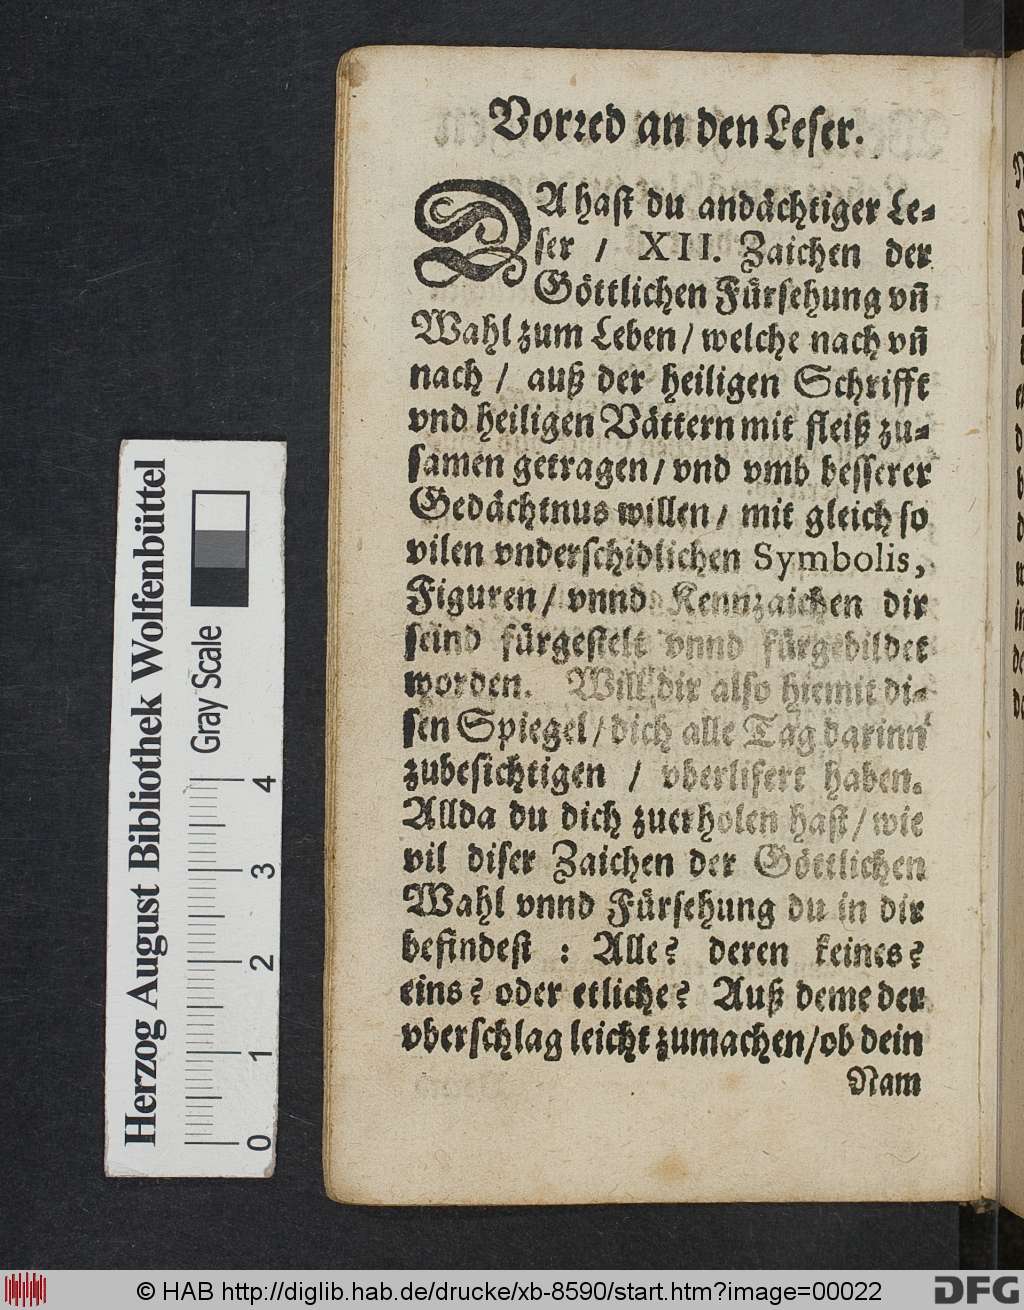 Vorꝛed an den Leſer.
DA haſt du andächtiger Le-
ſer / XII. Zaichen der
Göttlichen Fürſehung vñ
Wahl zum Leben / welche nach vñ
nach / auß der heiligen Schrifft
vnd heiligen Vättern mit fleiß zu-
ſamen getragen / vnd vmb beſſerer
Gedächtnus willen / mit gleich ſo
vilen vnderſchidlichen Symbolis,
Figuren / vnnd Kennzaichen dir
ſeind fürgeſtelt vnnd fürgebildet
worden. Will dir alſo hiemit di-
ſen Spiegel / dich alle Tag darinn
zubeſichtigen / vberlifert haben.
Allda du dich zuerholen haſt / wie
vil diſer Zaichen der Göttlichen
Wahl vnnd Fürſehung du in dir
befindeſt : Alle? deren keines?
eins? oder etliche? Auß deme der
vberſchlag leicht zumachen / ob dein
Nam
Herzog August Bibliothek Wolfenbüttel
Gray Scale
0 1 2 3 4
© HAB http://diglib.hab.de/drucke/xb-8590/start.htm?image=00022
DFG